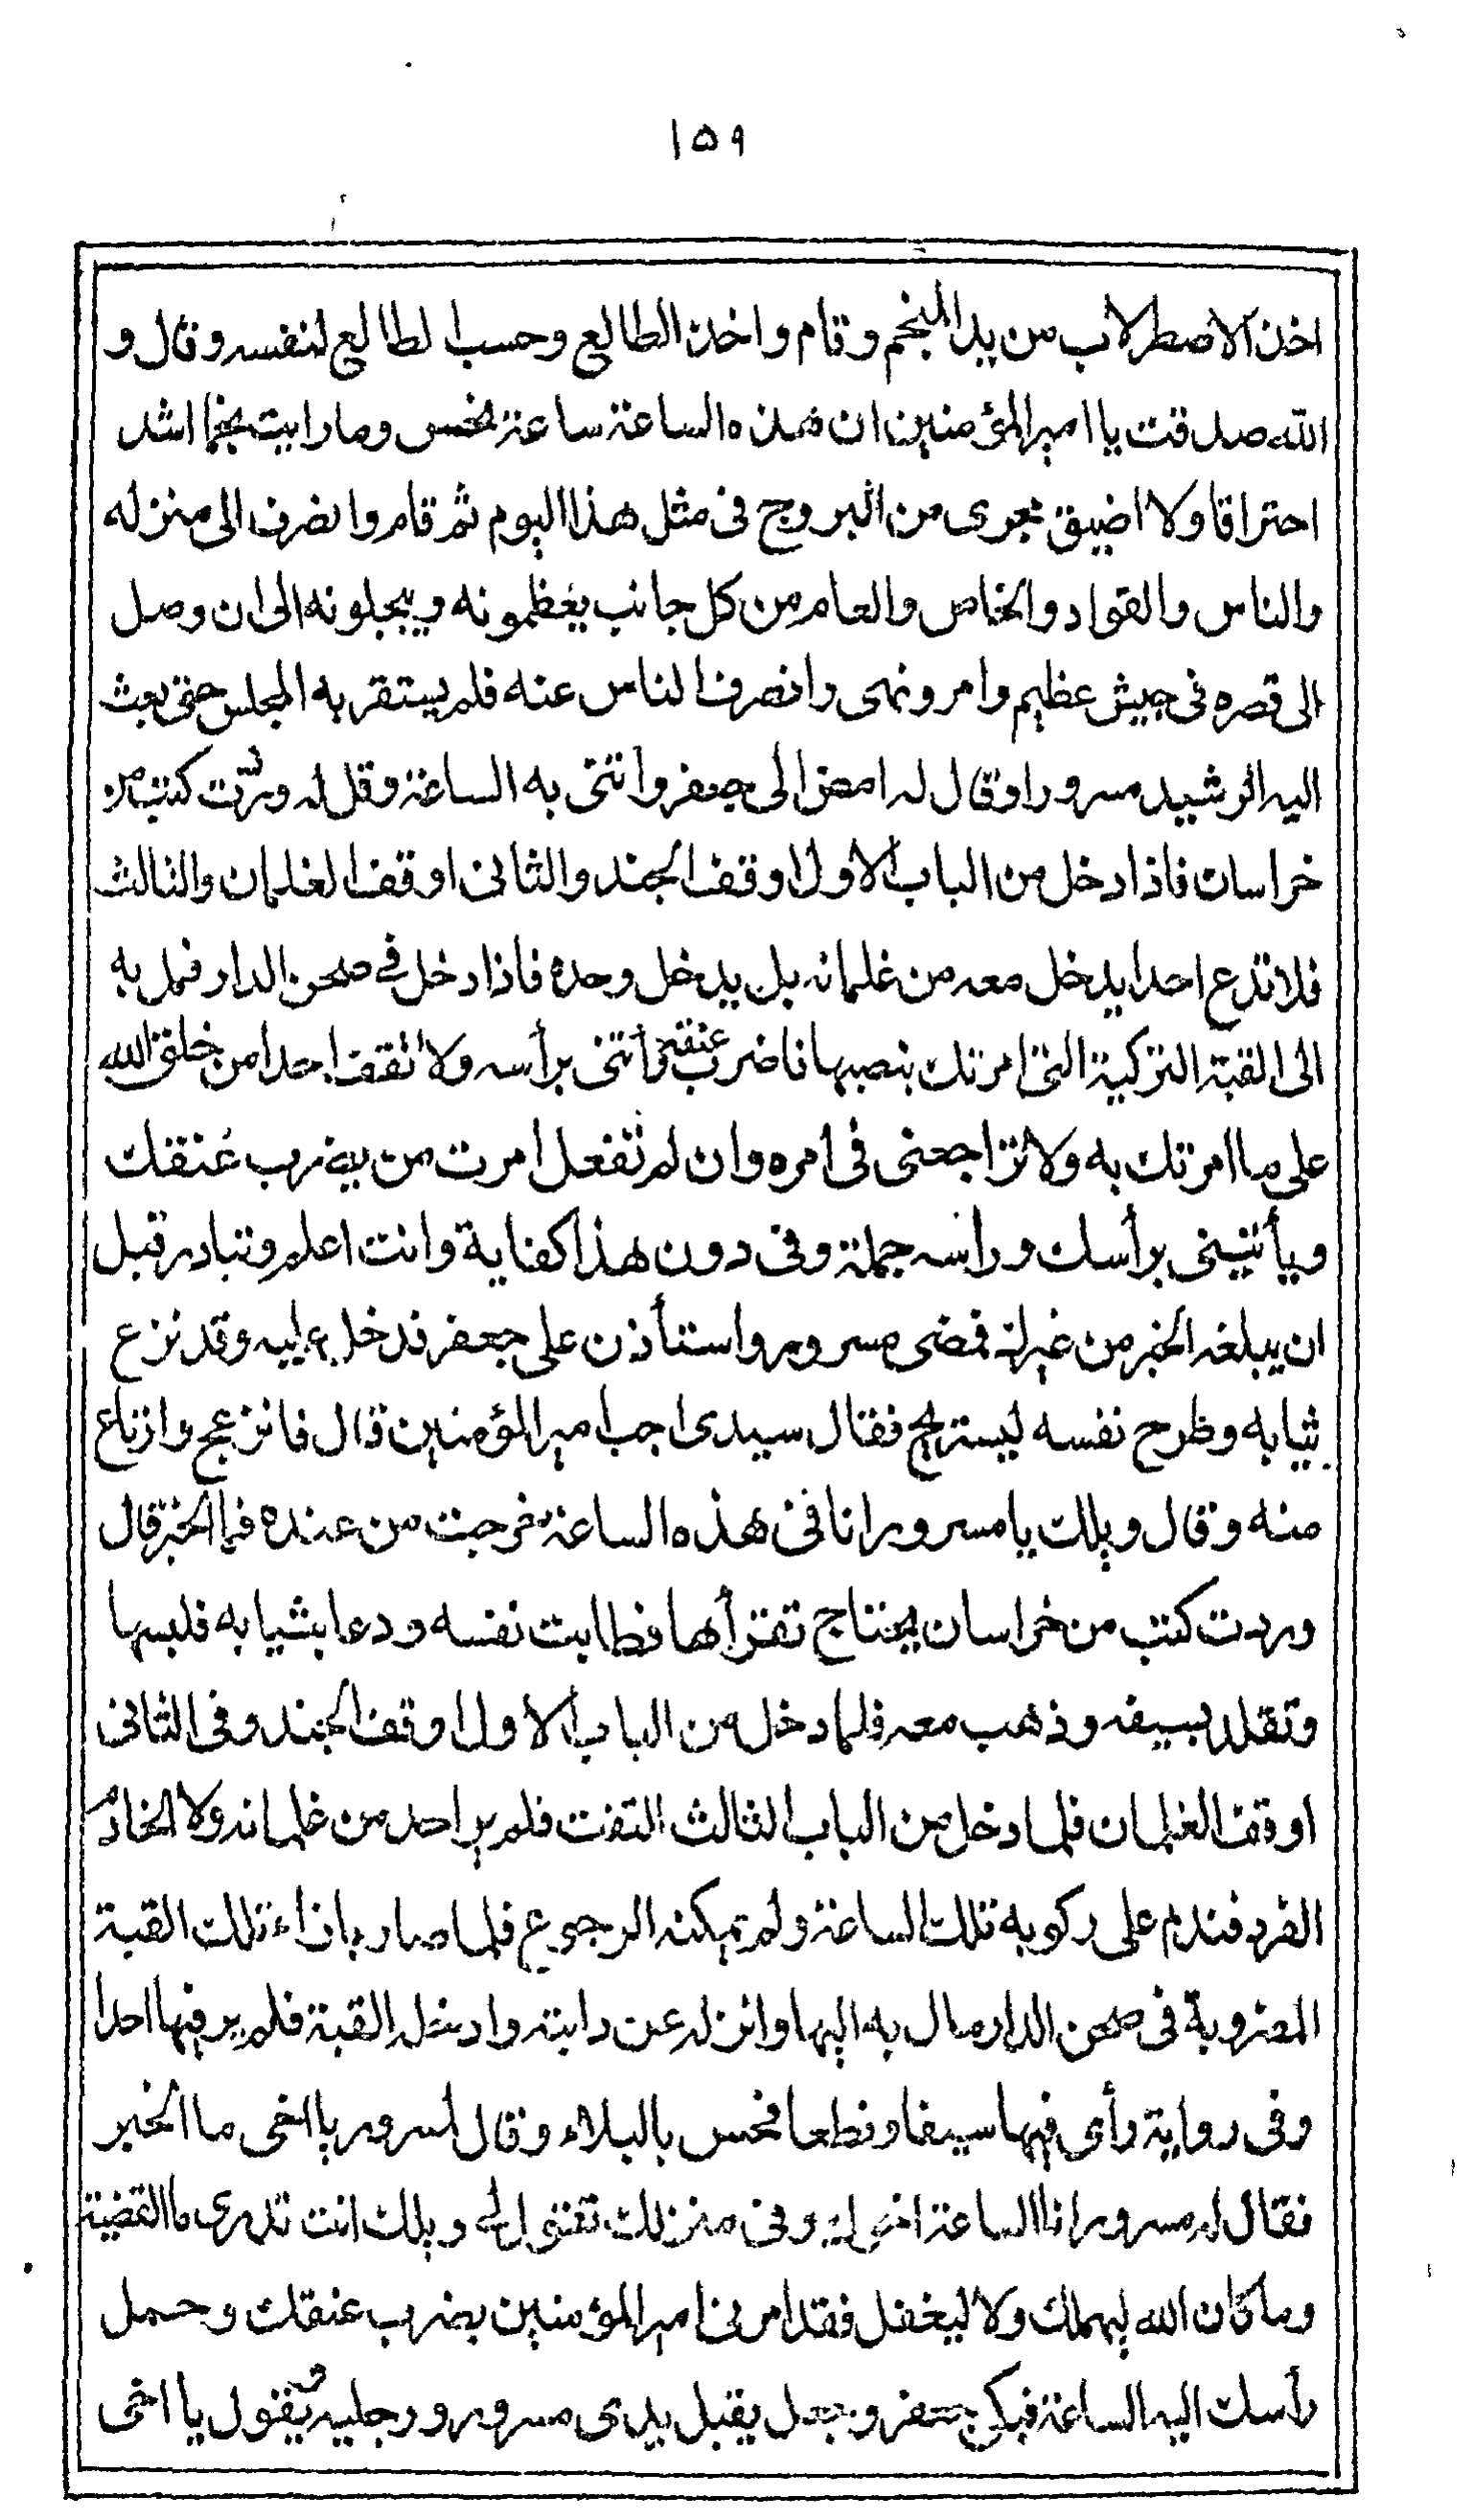 ١٥٩
اخذ الاصطرلاب من يد المنجم وقام واخذ الطالع وحسب الطالع لنفسه وقال و
الله صدقت يا امير المؤمنين ان هذه الساعة ساعة نحس وما رايت نجما اشد
احتراقا ولا اضيق مجرى من البروج فى مثل هذا اليوم ثم قام وانصرف الى منزله
والناس والقواد والخاص والعام من كل جانب يعظمونه ويبجلونه الى ان وصل
الى قصره فى جيش عظيم وامر ونهى وانصرف الناس عنه فلم يستقر به المجلس حتى بعث
اليه الرشيد مسرورا وقال له امض الى جعفر وائتنى به الساعة وقل له وردت كتب من
خراسان فاذا دخل من الباب الاول اوقف الجند والثانى اوقف الغلمان والثالث
فلا تدع احدا يدخل معه من غلمانه بل يدخل وحده فاذا دخل فى صحن الدار فمل به
الى القبة التركية التى امرتك بنصبها فاضرب عنقه وأتنى برأسه ولا تقف احدا من خلق الله
على ما امرتك به ولا تراجعنى فى امره وان لم تفعل امرت من يضرب عنقك
ويأتينى برأسك ورأسه جملة وفى دون هذا كفاية وانت اعلم وتبادر قبل
ان يبلغه الخبر من غيرك فمضى مسرور واستأذن على جعفر فدخل عليه وقد نزع
ثيابه وطرح نفسه ليستريح فقال سيدى اجب امير المؤمنين قال فانزعج وارتاع
منه وقال ويلك يا مسرور انا فى هذه الساعة خرجت من عنده فما الخبر قال
وردت كتب من خراسان يحتاج تقرأها فطابت نفسه ودعا بثيابه فلبسها
وتقلد بسيفه وذهب معه فلما دخل من الباب الاول اوقف الجند وفى الثانى
اوقف الغلمان فلما دخل من الباب الثالث التفت فلم ير احد من غلمانه ولا الخادم
الفرد فندم على ركوبه تلك الساعة ولم يمكنه الرجوع فلما صار باذاء تلك القبة
المضروبة فى صحن الدار مال به اليها وانزله عن دابته وادخله القبة فلم ير فيها احدا
وفى رواية رأى فيها سيفا ونطعا فحس بالبلاء وقال لمسرور يا اخى ما الخبر
فقال له مسرور انا الساعة اخوك وفى منزلك تقول لى ويلك انت تدرى ما القضية
وما كان الله ليهملك ولا ليغفل فقد امرنى امير المؤمنين بضرب عنقك وحمل
رأسك اليه الساعة فبكى جعفر وجعل يقبل يدى مسرور ورجليه ويقول يا اخى